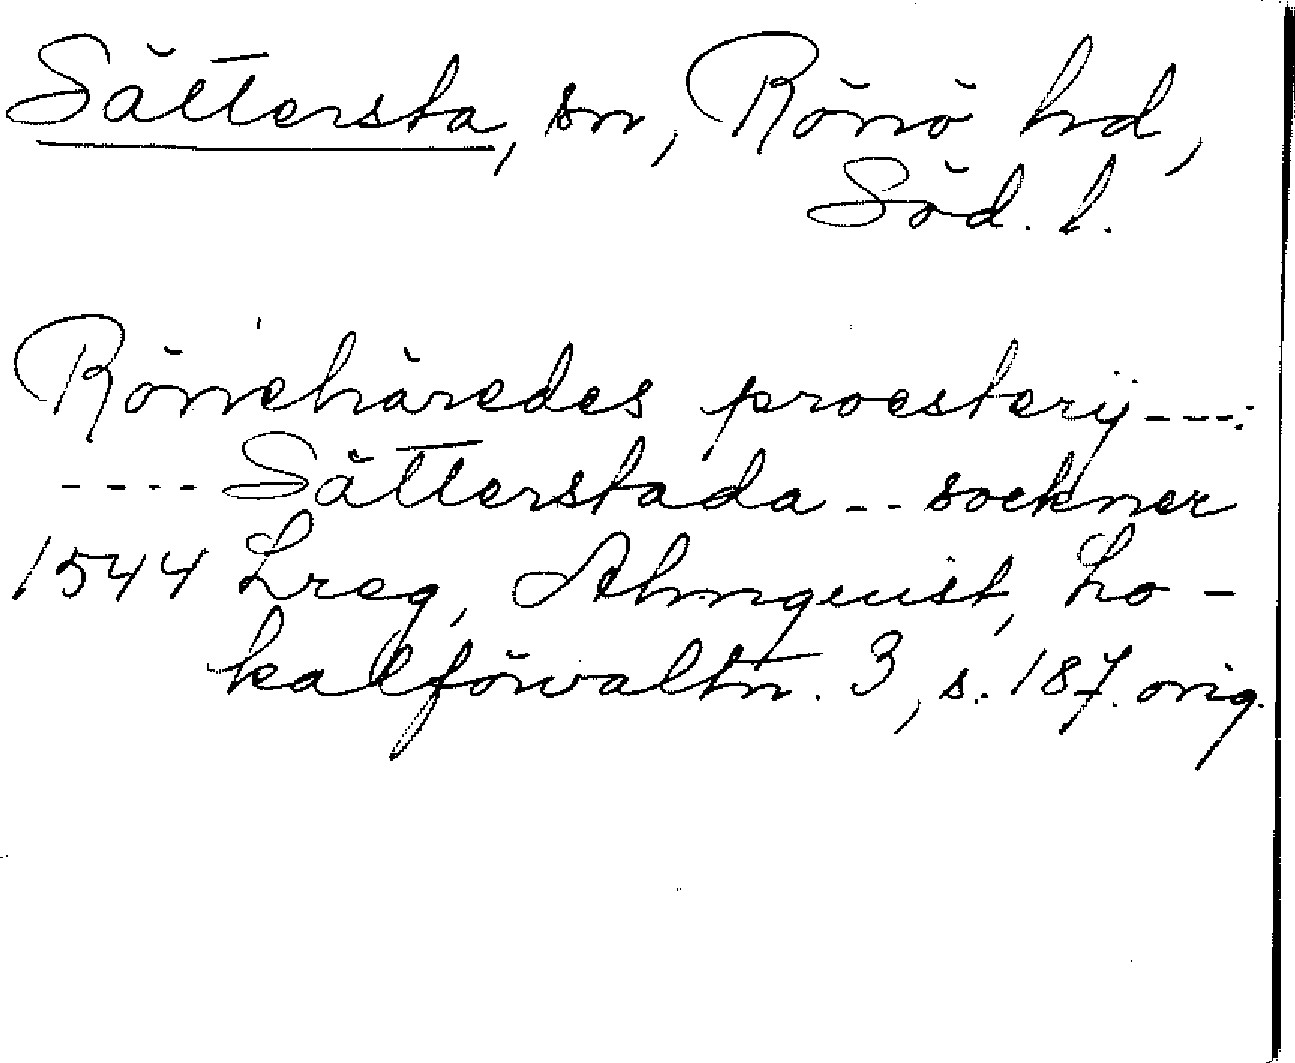 Sättersta, sn, Rönö hrd,
Söd. l.
Rönnehäredes proesterij ---:
---- Sätterstada -- sockner
1544 Lreg, Almquist, Lo-
kalförvaltn. 3, s. 187. orig.